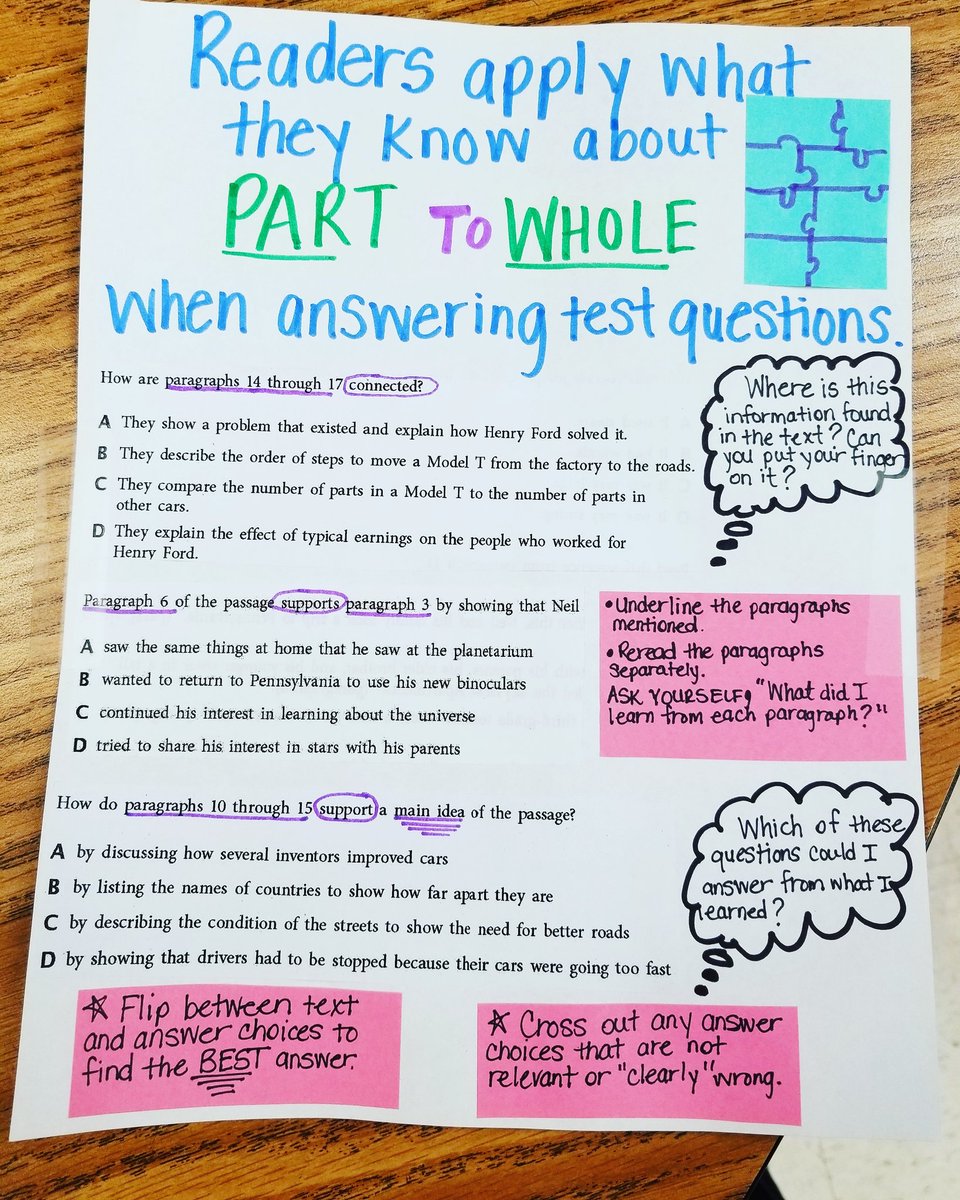 Readers apply what
they know about
PART TO WHOLE
when answering test questions.
How are paragraphs 14 through 17 connected?
A They show a problem that existed and explain how Henry Ford solved it.
B They describe the order of steps to move a Model T from the factory to the roads.
C They compare the number of parts in a Model T to the number of parts in
other cars.
D They explain the effect of typical earnings on the people who worked for
Henry Ford.
Where is this
information found
in the text? Can
you put your finger
on it?
Paragraph 6 of the passage supports paragraph 3 by showing that Neil
A saw the same things at home that he saw at the planetarium
B wanted to return to Pennsylvania to use his new binoculars
C continued his interest in learning about the universe
D tried to share his interest in stars with his parents
• Underline the paragraphs
mentioned.
• Reread the paragraphs
separately.
ASK YOURSELF, "What did I
learn from each paragraph?"
How do paragraphs 10 through 15 support a main idea of the passage?
A by discussing how several inventors improved cars
B by listing the names of countries to show how far apart they are
C by describing the condition of the streets to show the need for better roads
D by showing that drivers had to be stopped because their cars were going too fast
Which of these
questions could I
answer from what I
learned?
☆ Flip between text
and answer choices to
find the BEST answer.
☆ Cross out any answer
choices that are not
relevant or "clearly" wrong.